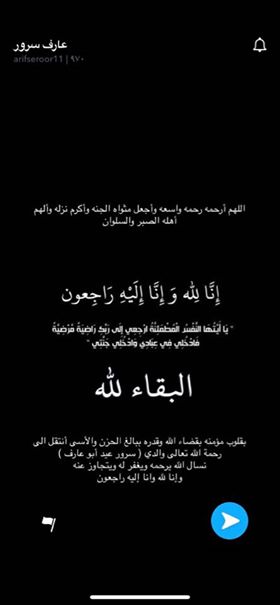 عارف سرور
arifseroor11 | ٩٧٠
اللهم أرحمه رحمه واسعه وأجعل مثواه الجنه وأكرم نزله وألهم
أهله الصبر والسلوان
إِنَّا لِلَّٰه وَ إِنَّا إِلَيْهِ رَاجِعون
" يَا أَيَّتُهَا النَّفْسُ الْمُطْمَئِنَّةُ ارْجِعِي إِلَى رَبِّكِ رَاضِيَةً مَّرْضِيَّةً
فَادْخُلِي فِي عِبَادِي وَادْخُلِي جَنَّتِي "
البقاء لله
بقلوب مؤمنه بقضاء الله وقدره ببالغ الحزن والأسى أنتقل الى
رحمة الله تعالى والدي ( سرور عيد أبو عارف )
نسال الله يرحمه ويغفر له ويتجاوز عنه
وإنا لله وانا إليه راجعون